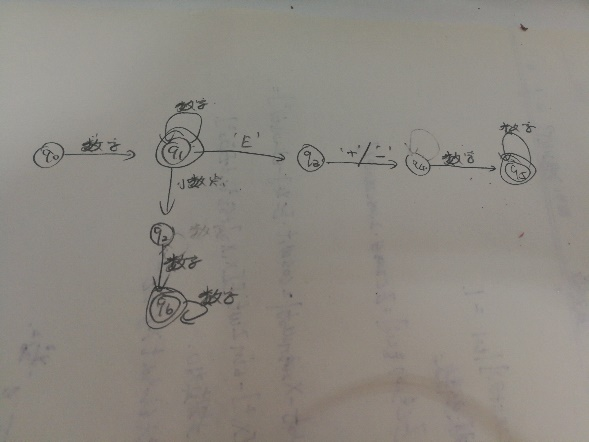 数字
q0 数字 q1 'E' q3 '+'/'-' q4 数字 q5
数字
小数点
q2
数字
q6 数字